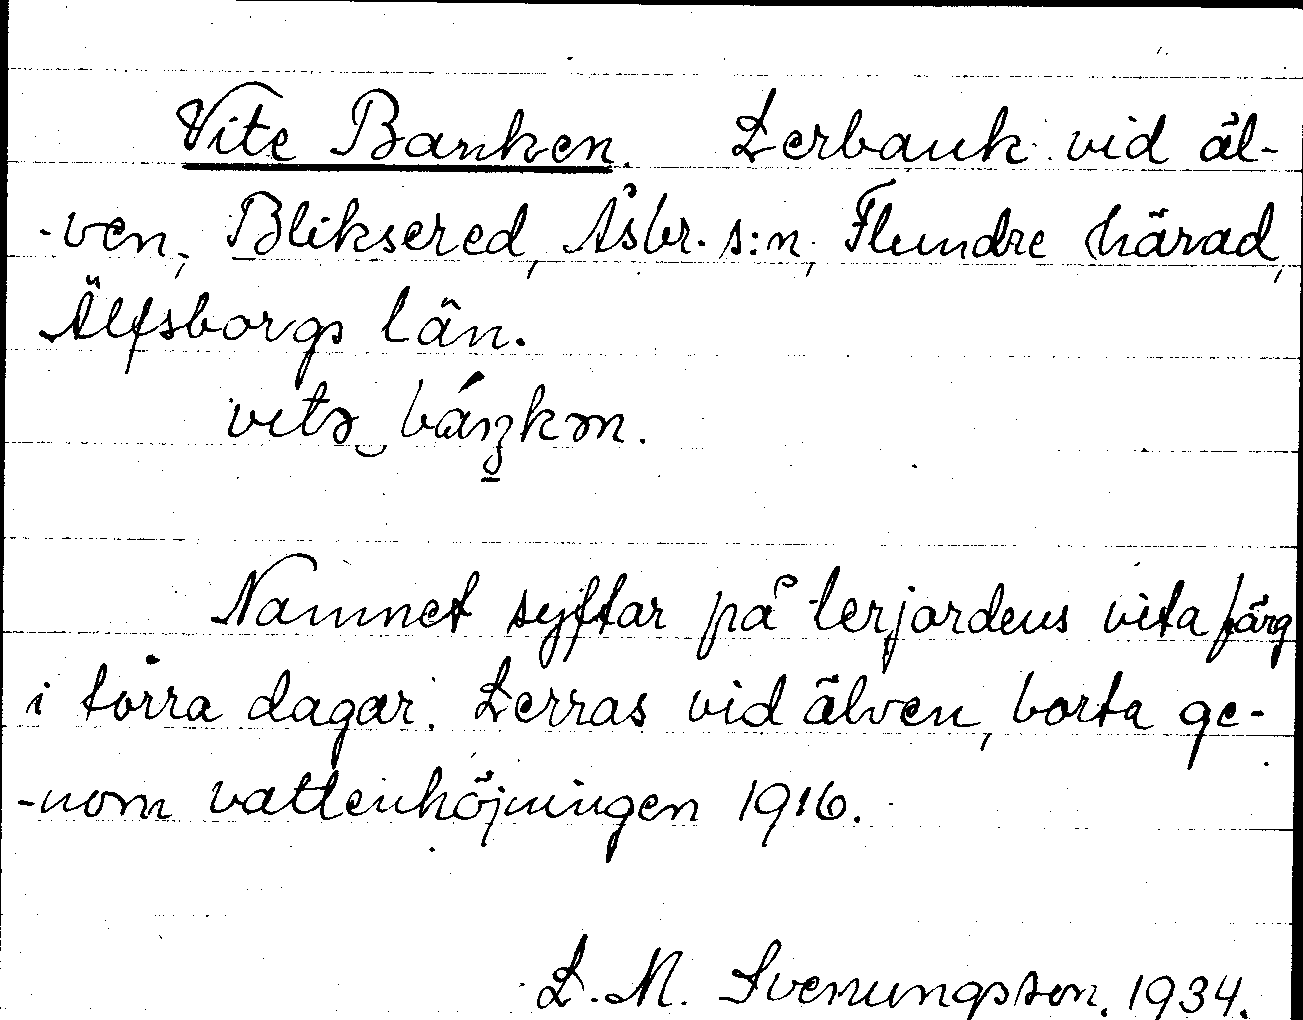 Vite Banken. Lerbank vid äl-
-ven, Bliksered, Åsbr. s:n, Flundre härad,
Älfsborgs län.
vitə‿báŋkən.
Namnet syftar på lerjordens vita färg
i torra dagar. Lerras vid älven, borta ge-
-nom vattenhöjningen 1916.
L. M. Svenungsson. 1934.